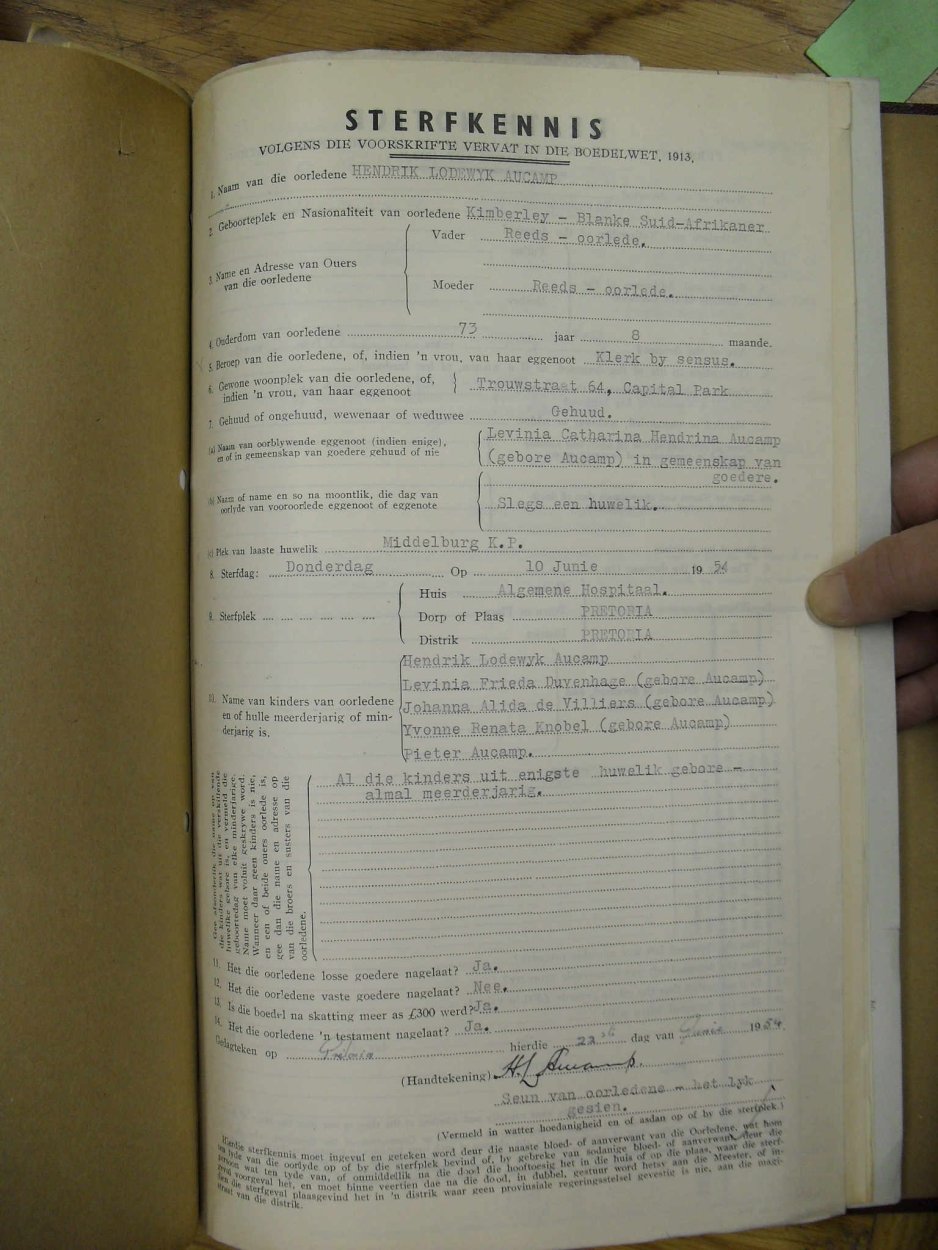 STERFKENNIS
VOLGENS DIE VOORSKRIFTE VERVAT IN DIE BOEDELWET, 1913.
1. Naam van die oorledene HENDRIK LODEWYK AUCAMP
2. Geboorteplek en Nasionaliteit van oorledene Kimberley - Blanke Suid-Afrikaner
3. Name en Adresse van Ouers van die oorledene
Vader Reeds - oorlede.
Moeder Reeds - oorlede.
4. Ouderdom van oorledene 73 jaar 8 maande.
5. Beroep van die oorledene, of, indien 'n vrou, van haar eggenoot Klerk by sensus.
6. Gewone woonplek van die oorledene, of,
indien 'n vrou, van haar eggenoot Trouwstraat 64, Capital Park
7. Gehuud of ongehuud, wewenaar of weduwee Gehuud.
(a) Naam van oorblywende eggenoot (indien enige), Levinia Catharina Hendrina Aucamp
en of in gemeenskap van goedere gehuud of nie (gebore Aucamp) in gemeenskap van
goedere.
(b) Naam of name en so na moontlik, die dag van
oorlyde van vooroorlede eggenoot of eggenote Slegs een huwelik.
(c) Plek van laaste huwelik Middelburg K.P.
8. Sterfdag: Donderdag Op 10 Junie 19 54
9. Sterfplek
Huis Algemene Hospitaal.
Dorp of Plaas PRETORIA
Distrik PRETORIA
10. Name van kinders van oorledene
en of hulle meerderjarig of min-
derjarig is.
Hendrik Lodewyk Aucamp
Levinia Frieda Duvenhage (gebore Aucamp)
Johanna Alida de Villiers (gebore Aucamp)
Yvonne Renata Knobel (gebore Aucamp)
Pieter Aucamp.
Gee afsonderlik die name op van
die kinders wat uit die verskillende
huwelike gebore is, en vermeld die
geboortedag van elke minderjarige.
Name moet voluit geskrywe word.
Wanneer daar geen kinders is nie,
en een of beide ouers oorlede is,
gee dan die name en adresse op
van die broers en susters van die
oorledene.
Al die kinders uit enigste huwelik gebore -
almal meerderjarig.
11. Het die oorledene losse goedere nagelaat? Ja.
12. Het die oorledene vaste goedere nagelaat? Nee.
13. Is die boedel na skatting meer as £300 werd? Ja.
14. Het die oorledene 'n testament nagelaat? Ja.
Gelagteken op Pretoria hierdie 22 dag van Junie 1954
(Handtekening) H L Aucamp.
Seun van oorledene - het lyk
gesien.
(Vermeld in watter hoedanigheid en of asdan op of by die sterfplek.)
Hierdie sterfkennis moet ingevul en geteken word deur die naaste bloed- of aanverwant van die Oorledene, wat hom
ten tyde van die oorlyde op of by die sterfplek bevind of, by gebreke van sodanige bloed- of aanverwant, deur die
persoon wat ten tyde van, of onmiddellik na die dood die hooftoesig het in die huis of op die plaas, waar die sterf-
geval voorgeval het, en moet binne veertien dae na die dood, in dubbel, gestuur word hetsy aan die Meester, of in-
dien die sterfgeval plaasgevind het in 'n distrik waar geen provinsiale regeringsstelsel gevestig is nie, aan die magi-
straat van die distrik.